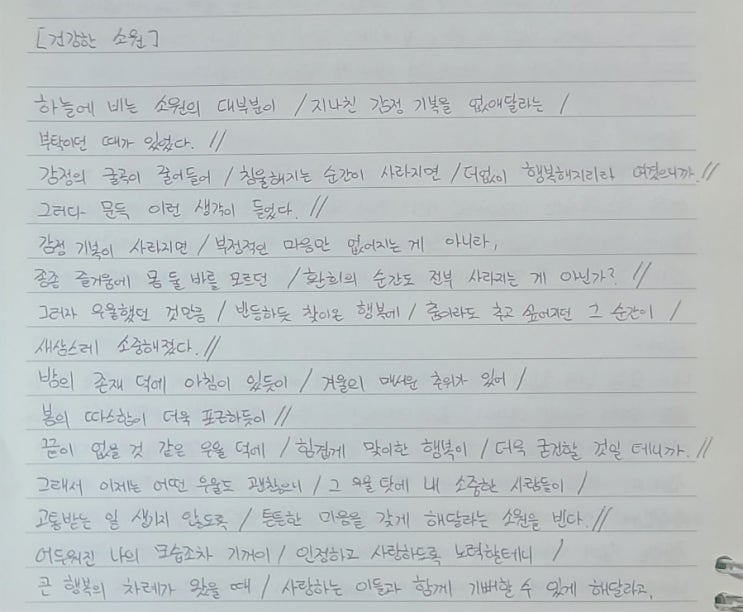 [건강한 소원]
하늘에 비는 소원의 대부분이 / 지나친 감정 기복을 없애달라는 /
부탁이던 때가 있었다. //
감정의 굴곡이 줄어들어 / 침울해지는 순간이 사라지면 / 더없이 행복해지리라 여겼으니까. //
그러다 문득 이런 생각이 들었다. //
감정 기복이 사라지면 / 부정적인 마음만 없어지는 게 아니라,
종종 즐거움에 몸 둘 바를 모르던 / 환희의 순간도 전부 사라지는 게 아닌가? //
그러자 우울했던 것만큼 / 반등하듯 찾아온 행복에 / 춤이라도 추고 싶어지던 그 순간이 /
새삼스레 소중해졌다. //
밤의 존재 덕에 아침이 있듯이 / 겨울의 매서운 추위가 있어 /
봄의 따스함이 더욱 포근하듯이 //
끝이 없을 것 같은 우울 덕에 / 힘겹게 맞이한 행복이 / 더욱 굳건할 것일 테니까. //
그래서 이제는 어떤 우울도 괜찮으니 / 그 우울 탓에 내 소중한 사람들이 /
고통받는 일 생기지 않도록 / 튼튼한 마음을 갖게 해달라는 소원을 빈다. //
어두워진 나의 모습조차 기꺼이 / 인정하고 사랑하도록 노력할테니 /
큰 행복의 차례가 왔을 때 / 사랑하는 이들과 함께 기뻐할 수 있게 해달라고.